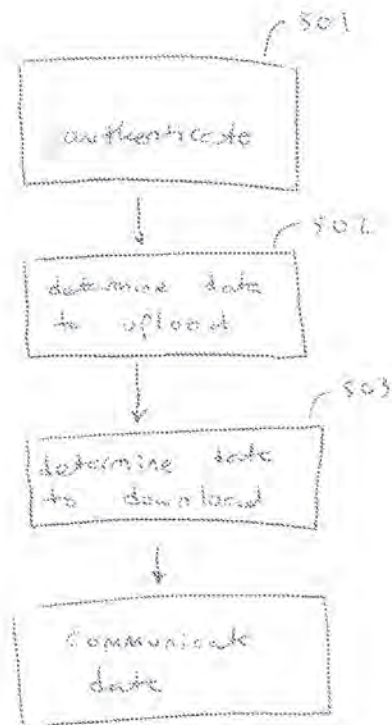 501
authenticate
502
determine data
to upload
503
determine data
to download
communicate
data